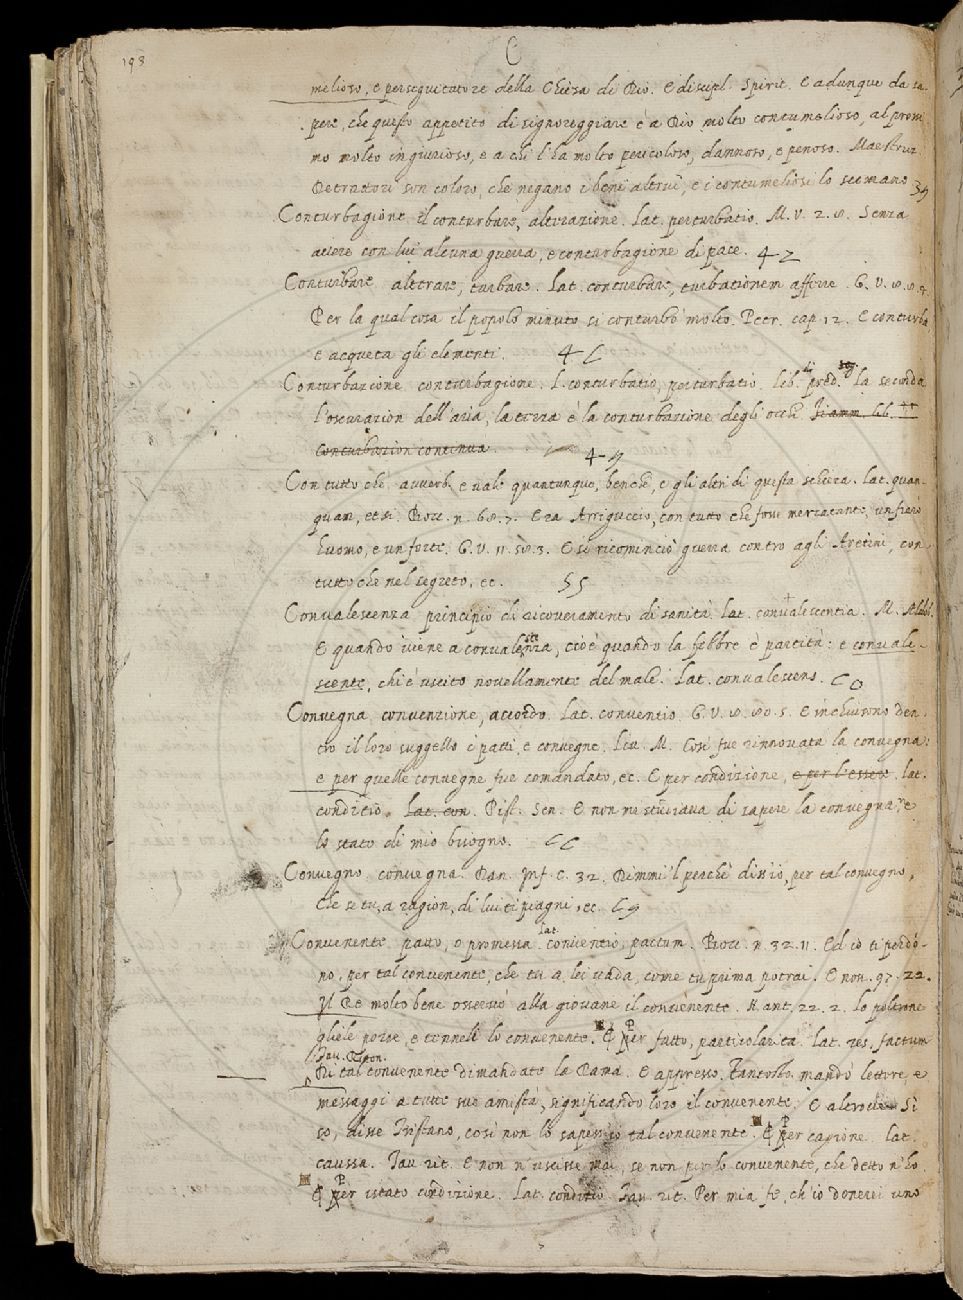 198
C
melioso, e perseguitatore della Chiesa di Dio. E discipl. Spirit. E adunque da sa-
pere, che questo appetito di signoreggiare è a Dio molto contumelioso, al prossi
mo molto ingiurioso, e a chi l'ha molto pericoloso, dannoso, e penoso. Maestruz.
Detrattori son coloro, che negano i beni altrui, e i contumeliosi lo scemano
Conturbagione il conturbare, alterazione. Lat. perturbatio. M. V. 2. 8. Senza
avere con lui alcuna guerra, e conturbagione di pace. 42
Conturbare alterare, turbare. Lat. conturbare, turbationem afferre. G. V. 8. 8.
Per la qual cosa il popolo minuto si conturbò molto. Petr. cap. 12. E conturba,
e acqueta gli elementi.
Conturbazione conturbagione. L. conturbatio, perturbatio. Lib. pred. La seconda
l'oscurazion dell'aria, la terza è la conturbazione degli occhi Fiamm. 66.
conturbazion continua. 49
Con tutto che avverb. e vale quantunque, benchè, e gli altri di questa schiera. Lat. quan-
quam, etsi. Bocc. n. 68. 7. Era Arriguccio, con tutto che fosse mercatante, un fiero
huomo, e un forte. G. V. 11. 58. 3. E si ricominciò guerra contro agli Aretini, con
tutto che nel segreto, ec. 55
Convalescenza principio di ricoveramento di sanità Lat. convalescentia. M. Aldob.
E quando viene a convalescenza, cioè quando la febbre è partita: e convale-
scente, chi è uscito novellamente del male. Lat. convalescens. 60
Convegna convenzione, accordo Lat. conventio. G. V. 8. 80. 5. E inchiusono den-
tro il loro suggello i patti, e convegne. Liv. M. Così fue rinnovata la convegna:
e per quelle convegne fue comandato, ec. E per condizione, e per l'essere. lat.
conditio. Lat. con. Pist. Sen. E non ne studiava di sapere la convegna, e
lo stato di mio bisogno. 66
Convegno convegna. Dan. Inf. C. 32. Dimmi 'l perchè diss'io, per tal convegno,
Che se tu, a ragion, di lui ti piagni, ec. 69
Convenente patto, o promessa lat. conventio, pactum. Bocc. n. 32. 11. Ed io ti perdo-
no, per tal convenente, che tu a lei vada, come tu prima potrai. E nov. 97. 22.
Il Re molto bene osservò alla giovane il convenente. N. ant. 22. 2. lo poltrone
gliele porse, e tenneli lo convenente. ¶ Per fatto, particolarità. Lat. res, factum
Tav. Riton.
Di tal convenente dimandate la Dama. E appresso. Tantosto mandò lettere, e
messaggi a tutte sue amistà, significando loro il convenente. E altrove. Si
so, disse Tristano, così non lo sapess'io tal convenente. ¶ Per cagione. lat.
caussa. Tav. rit. E non n'uscisse mai, se non per lo convenente, che detto n'ho.
¶ Per istato condizione. Lat. conditio Tav. rit. Per mia fè, ch'io donerei uno